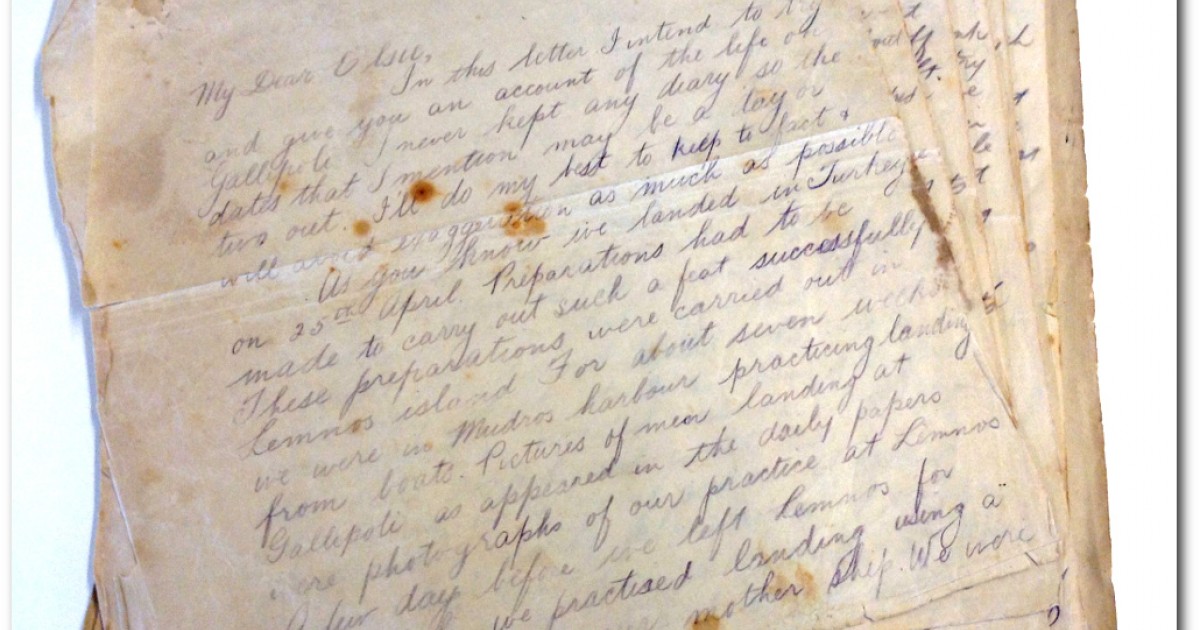 My Dear Elsie,
In this letter I intend to try
and give you an account of the life on
Gallipoli I never kept any diary so the
dates that I mention may be a day or
two out. I'll do my best to keep to fact &
will avoid exaggeration as much as possible
As you know we landed in Turkey
on 25th April. Preparations had to be
made to carry out such a feat successfully
These preparations were carried out in
Lemnos island For about seven weeks
we were in Mudros harbour practicing landing
from boats. Pictures of men landing at
Gallipoli as appeared in the daily papers
were photographs of our practice at Lemnos
A few days before we left Lemnos for
we practised landing using a
mother ship. We were